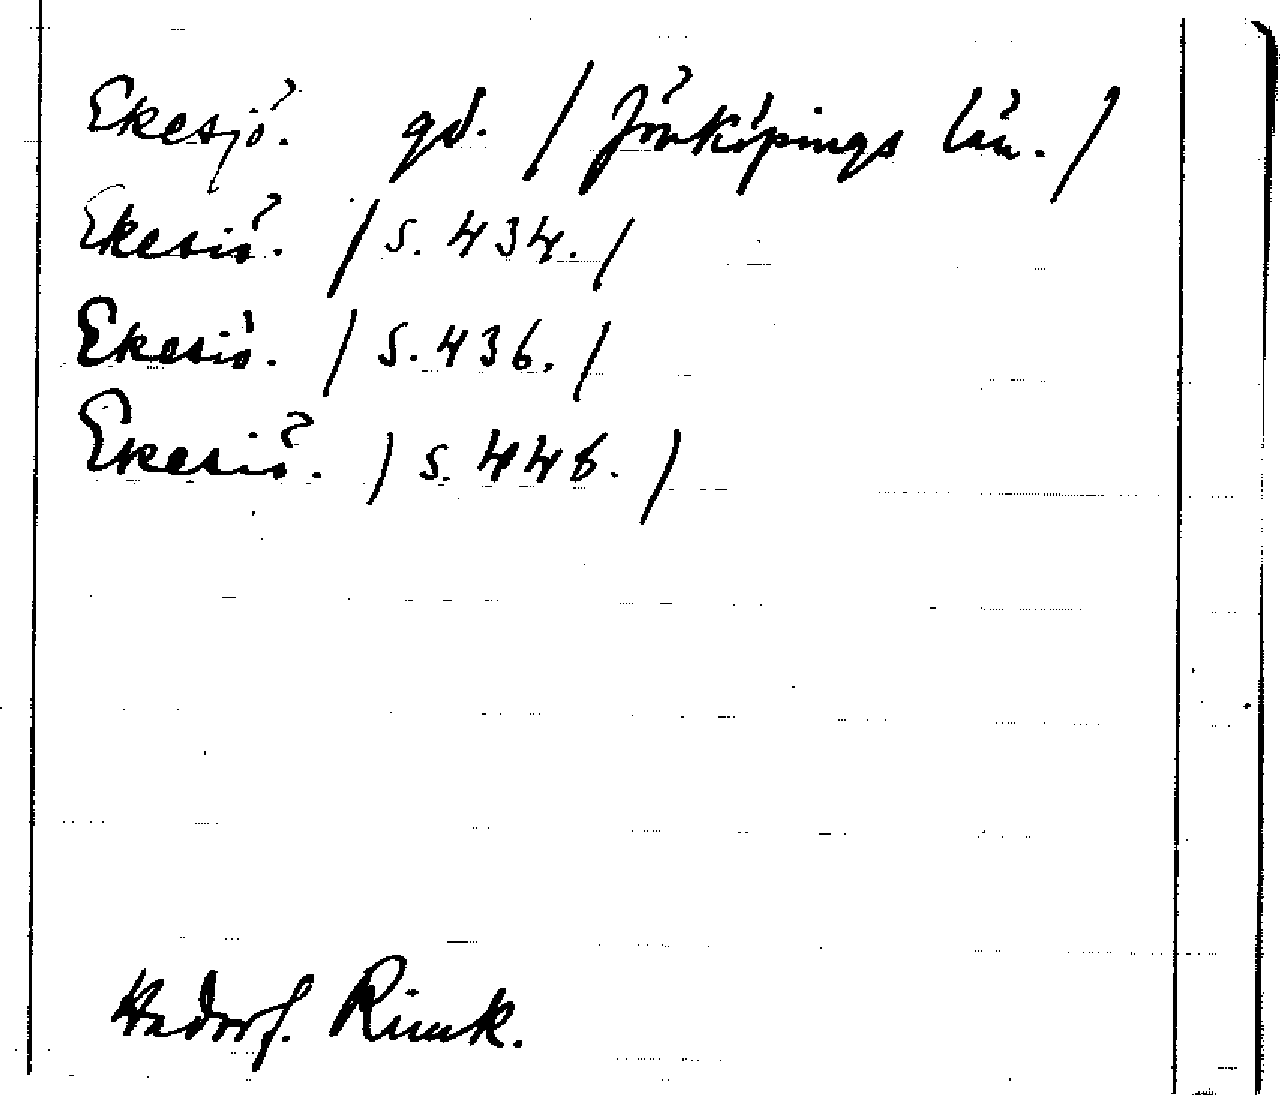 Ekesjö. gd. / Jönköpings län. /
Ekesiö. / S. 434. /
Ekesiö. / S. 436. /
Ekesiö. / S. 446. /
Hadorf. Rimk.